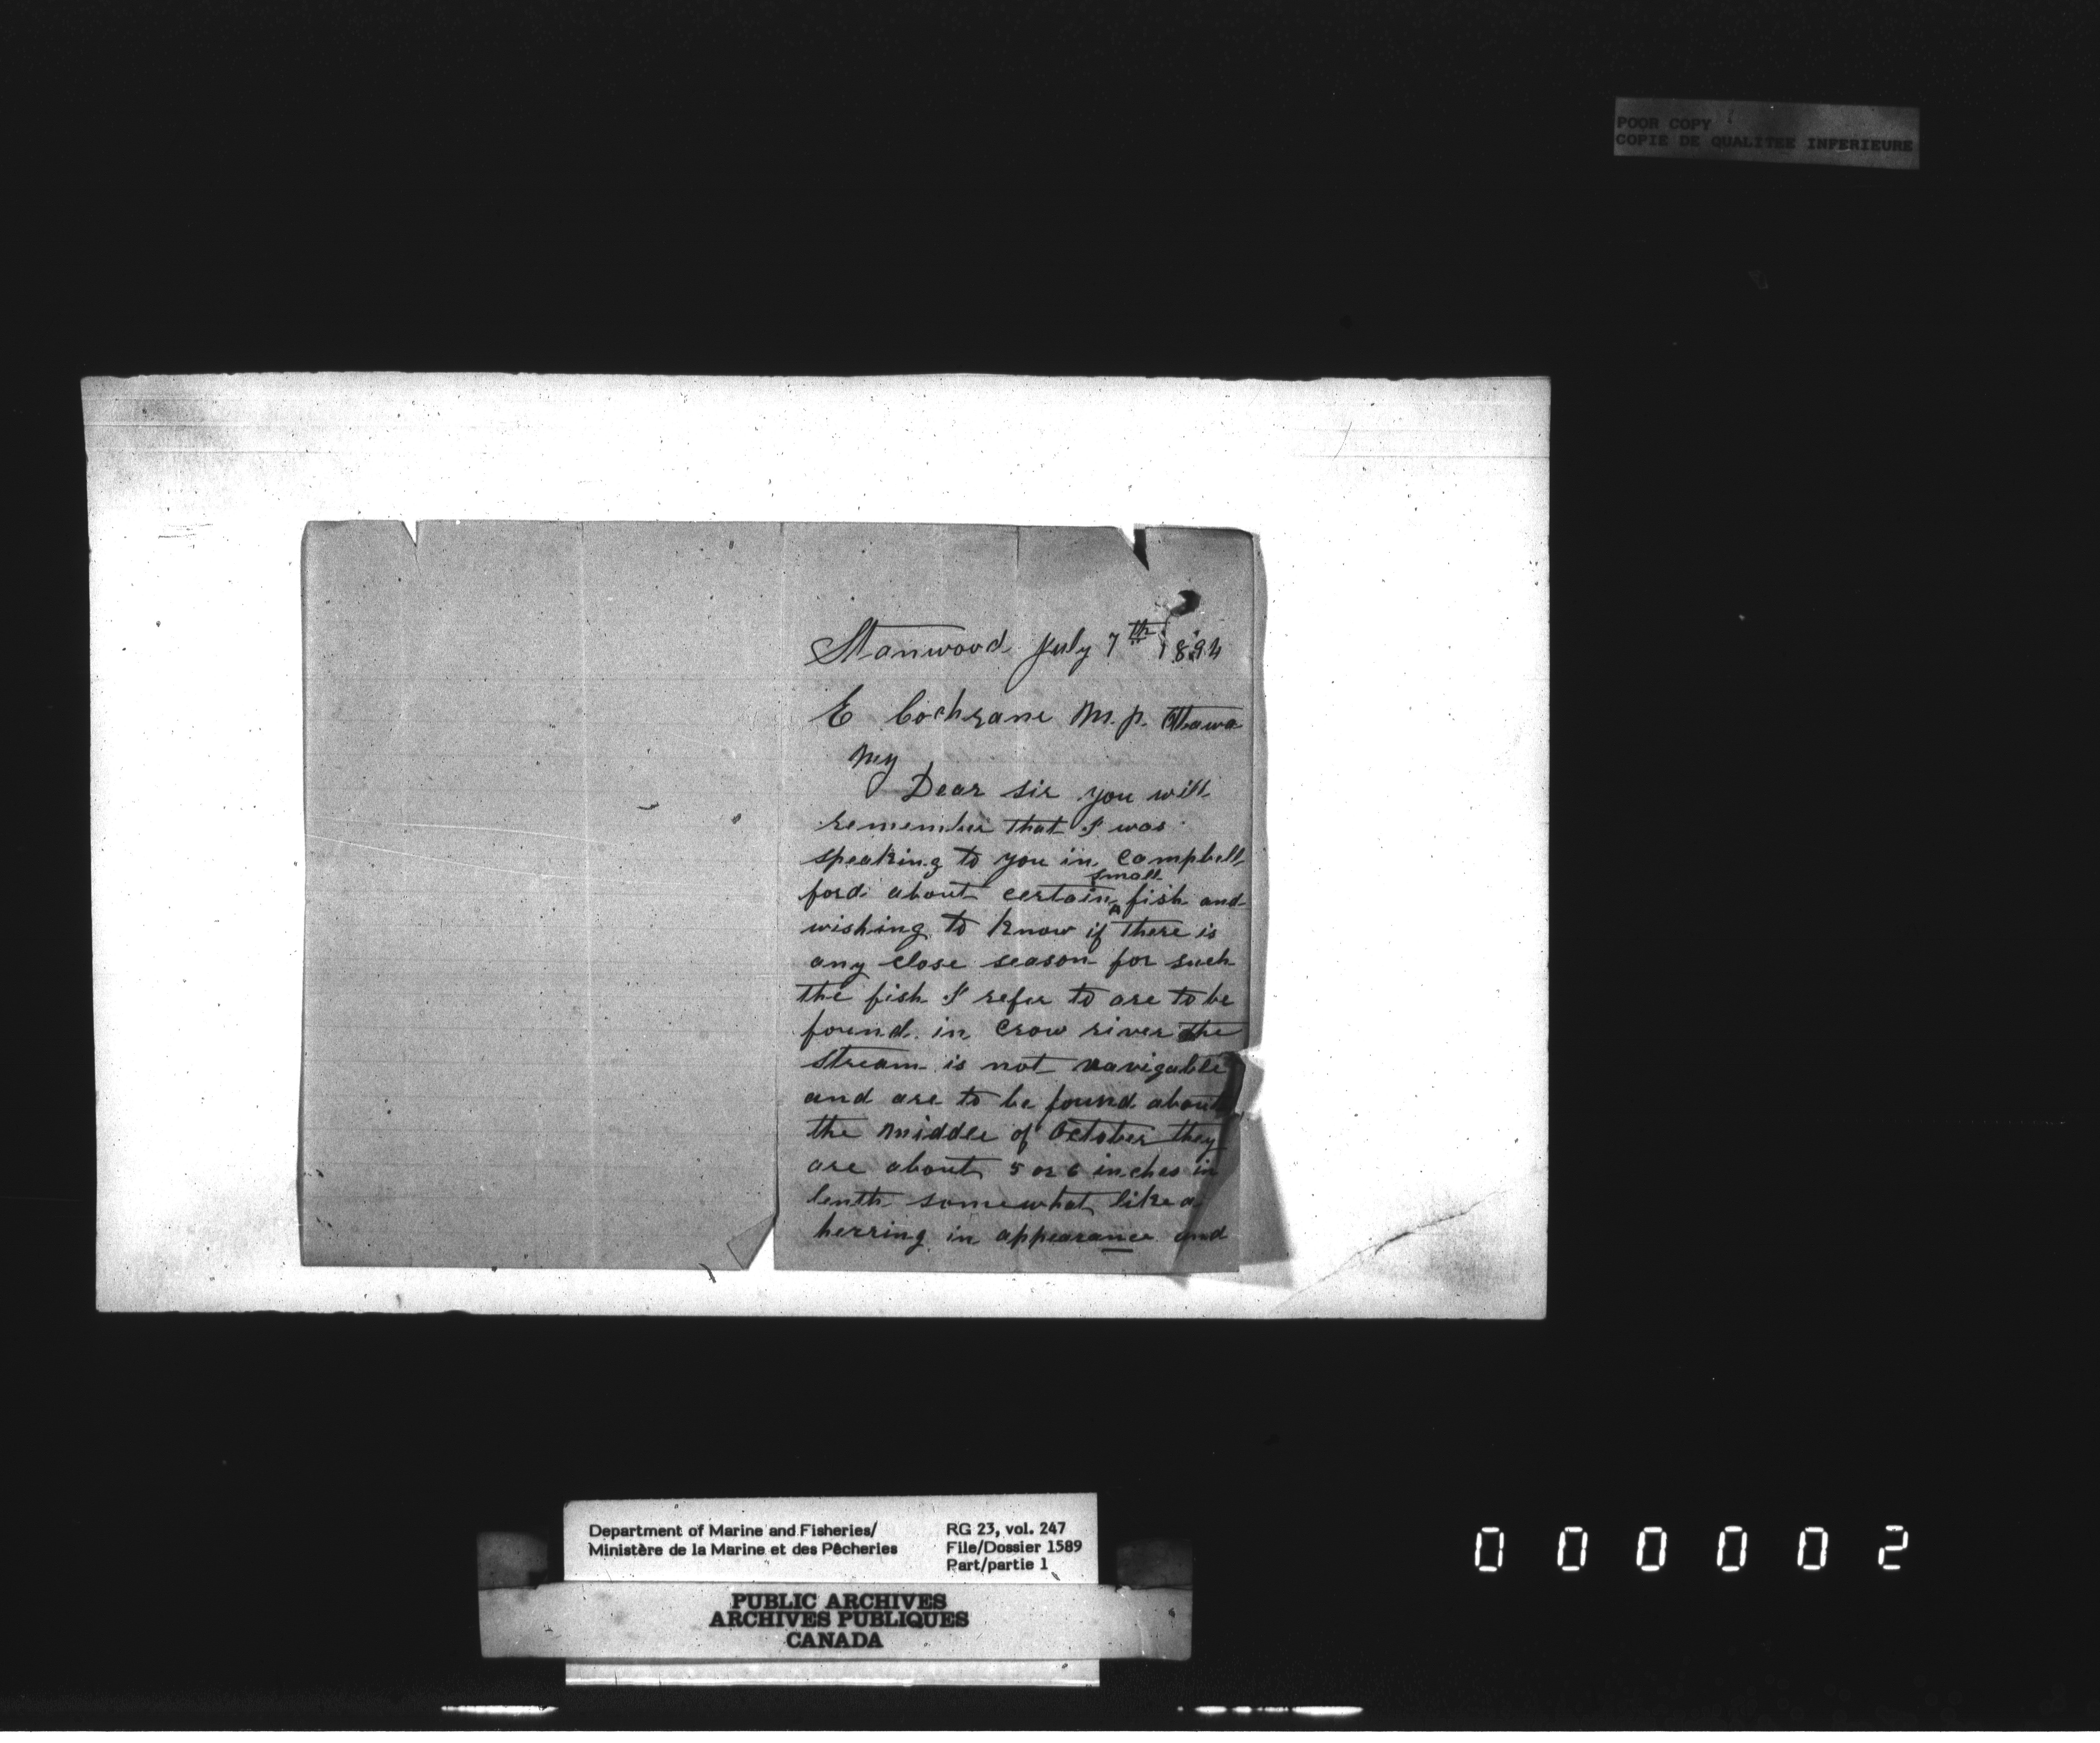 POOR COPY
COPIE DE QUALITEE INFERIEURE
Stanwood July 7th 1894
E Cochrane M.P. Ottawa
My
Dear sir you will
remember that I was
speaking to you in Campbell
ford about certain small fish and
wishing to know if there is
any close season for such
the fish I refer to are to be
found in Crow river the
stream is not navigable
and are to be found about
the middle of October they
are about 5 or 6 inches in
lenth somewhat like a
herring in appearance and
Department of Marine and Fisheries/
Ministère de la Marine et des Pêcheries
RG 23, vol. 247
File/Dossier 1589
Part/partie 1
PUBLIC ARCHIVES
ARCHIVES PUBLIQUES
CANADA
000002